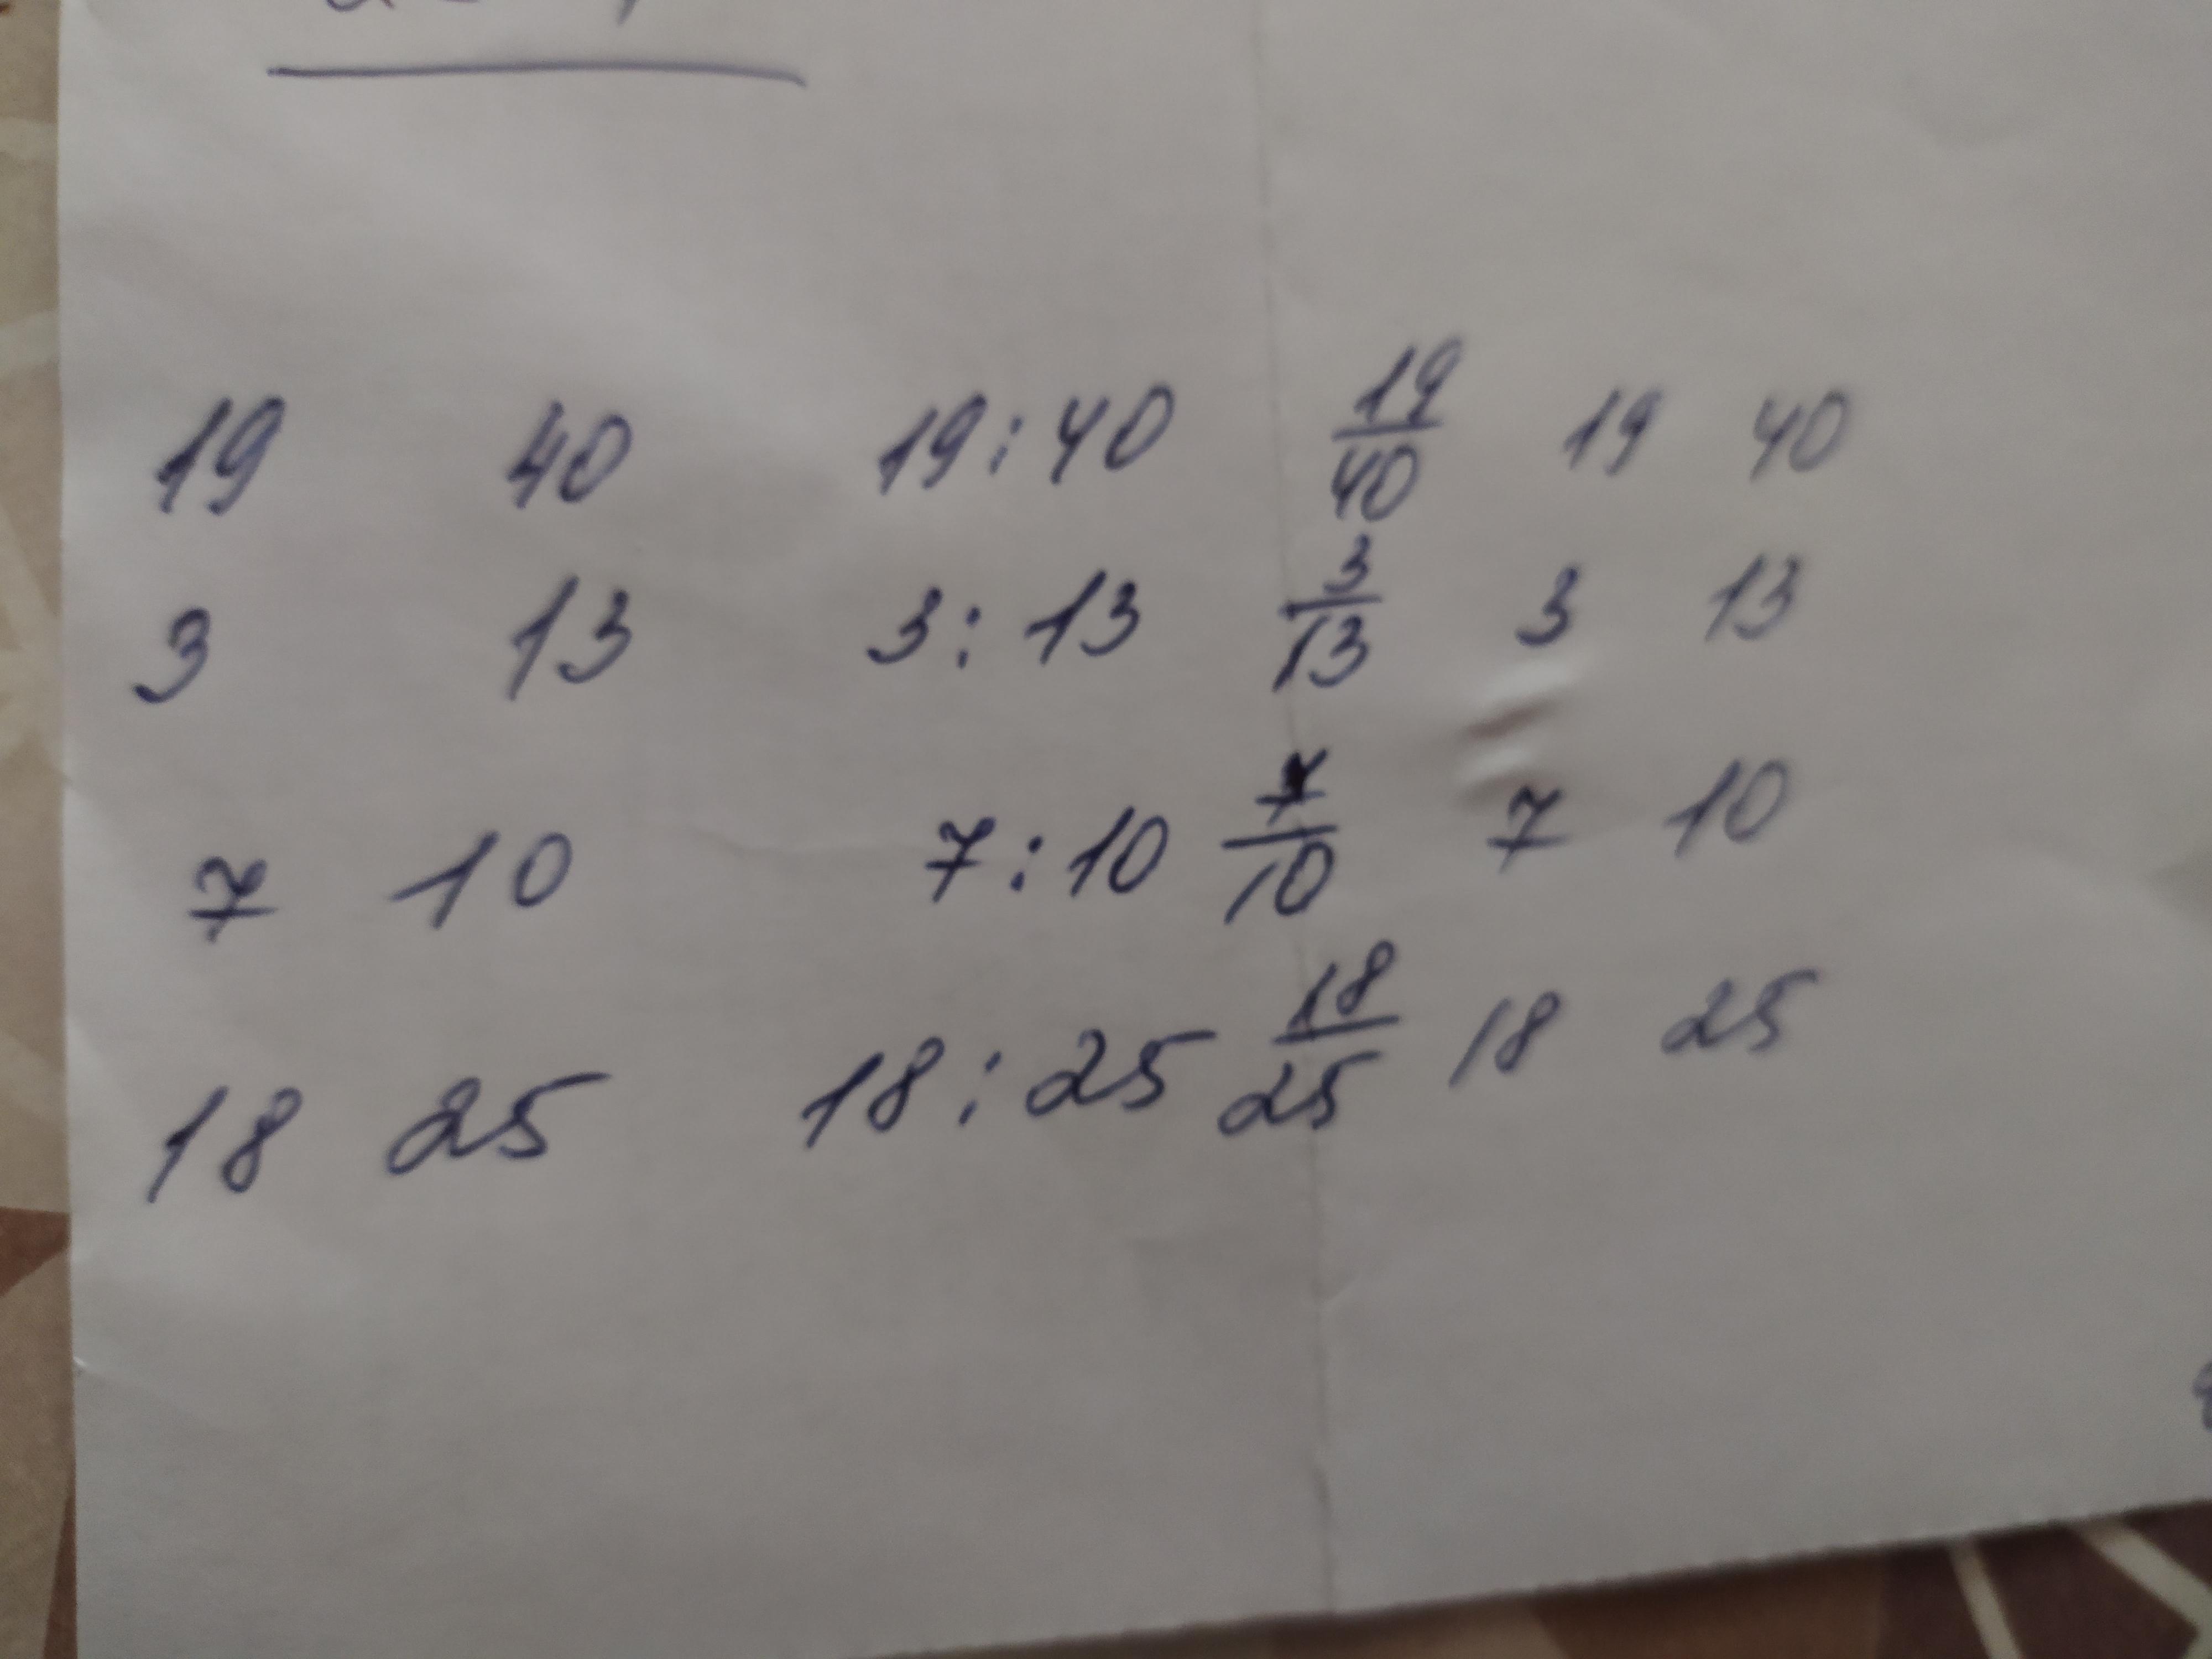 19 40 19:40 19/40 19 40
3 13 3:13 3/13 3 13
7 10 7:10 7/10 7 10
18 25 18:25 18/25 18 25